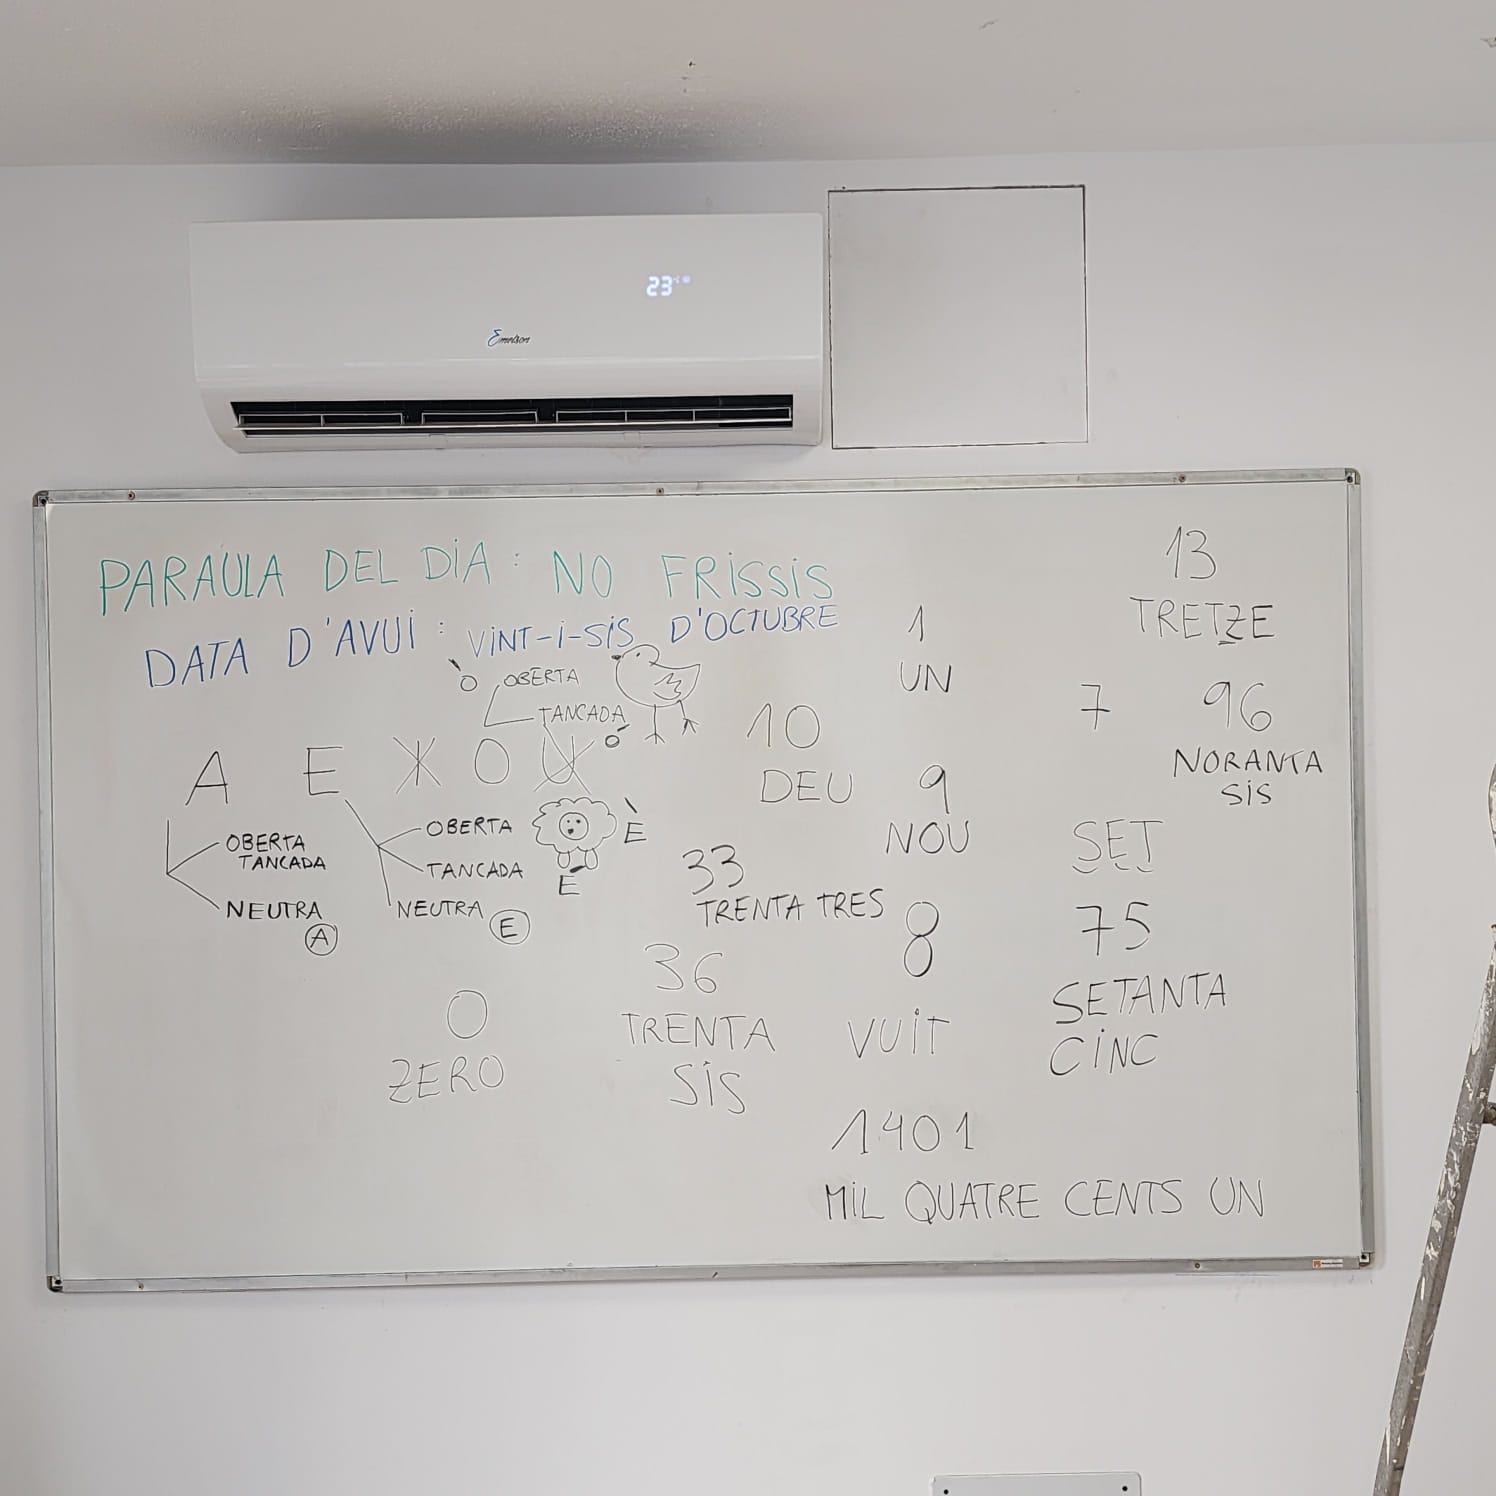 23
Emelson
PARAULA DEL DIA: NO FRISSIS
DATA D'AVUI: VINT-I-SIS D'OCTUBRE
Ò OBERTA
TANCADA
Ó
A E I O U
OBERTA
TANCADA
NEUTRA
A
OBERTA
TANCADA
NEUTRA
E
È
É
0
ZERO
10
DEU
33
TRENTA TRES
36
TRENTA
SIS
1
UN
9
NOU
8
VUIT
13
TRETZE
7
SET
96
NORANTA
SIS
75
SETANTA
CINC
1401
MIL QUATRE CENTS UN